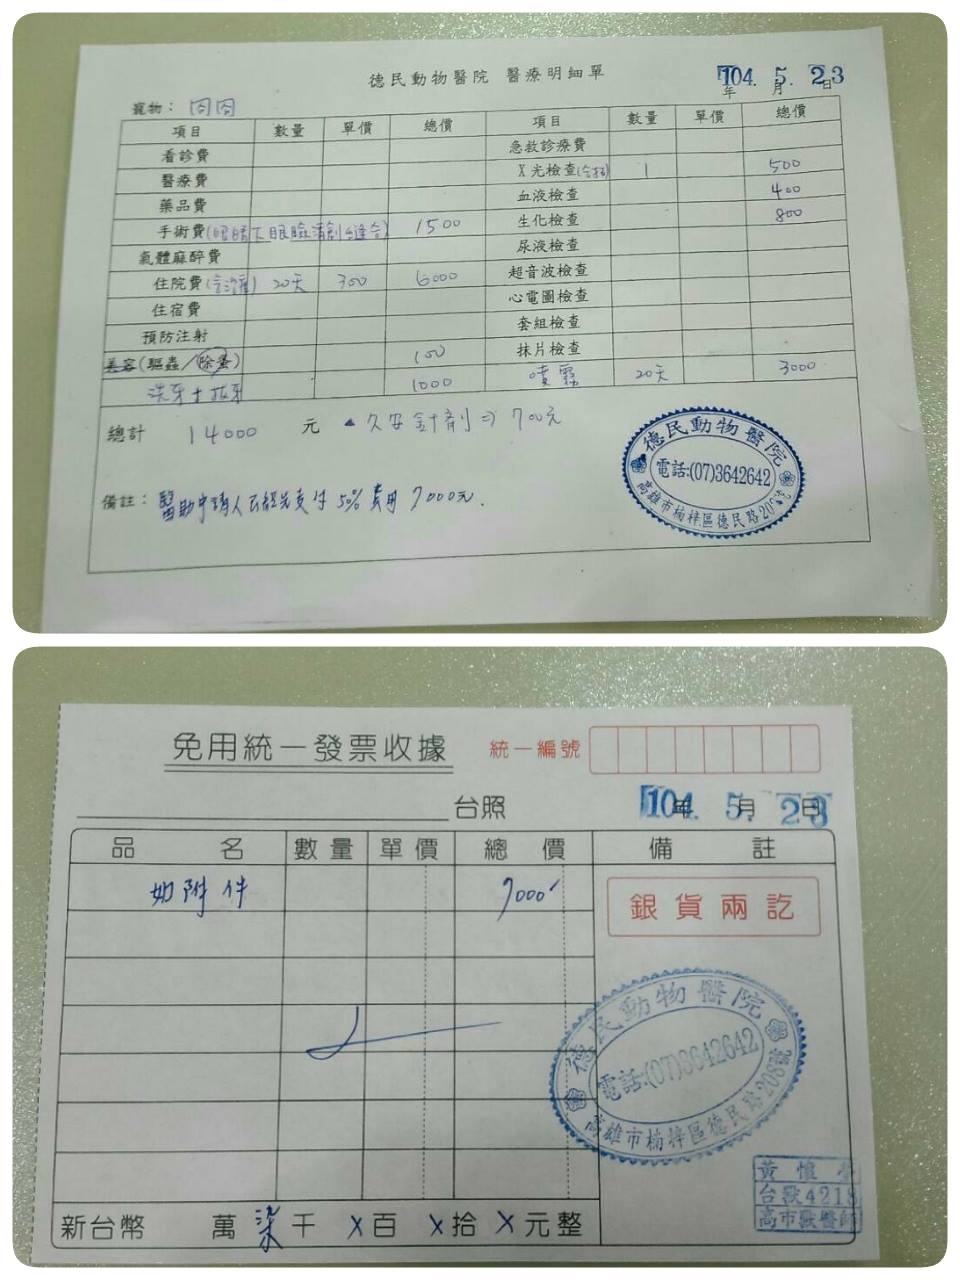 德民動物醫院 醫療明細單
104. 5. 23
年 月 日
寵物： 囧囧
項目 數量 單價 總價 項目 數量 單價 總價
看診費 急救診療費
醫療費 X光檢查 1 500
藥品費 血液檢查 400
手術費(眼睛下眼瞼清創縫合) 1500 生化檢查 800
氣體麻醉費 尿液檢查
住院費 20天 300 6000 超音波檢查
住宿費 心電圖檢查
預防注射 套組檢查
美容(驅蟲/除蚤) 100 抹片檢查
洗牙+拔牙 1000 噴霧 20天 3000
總計 14000 元 ▲久安針劑⇒700元
備註：醫助申請人已經先支付50%費用7000元.
德民動物醫院
電話:(07)3642642
高雄市楠梓區德民路208號
免用統一發票收據 統一編號
台照 104. 5. 23
年 月 日
品名 數量 單價 總價 備註
如附件 7000
銀貨兩訖
德民動物醫院
電話:(07)3642642
高雄市楠梓區德民路208號
黃懷
台獸4218
高市獸醫師
新台幣 萬柒千X百X拾X元整